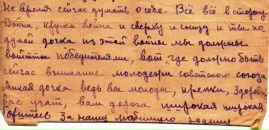 Не время сейчас думать о себе. Всё всё в сторону
Война, кругом война и сверху и снизу и ты не
думай дочка из этой войны мы должны
выйти победителями, вот где должно быть
сейчас внимание молодежи советского союза
дочка ведь вы молоды, крепки, здоровы
вас учат, вам дорога широкая широкая
за нашу любимую родину